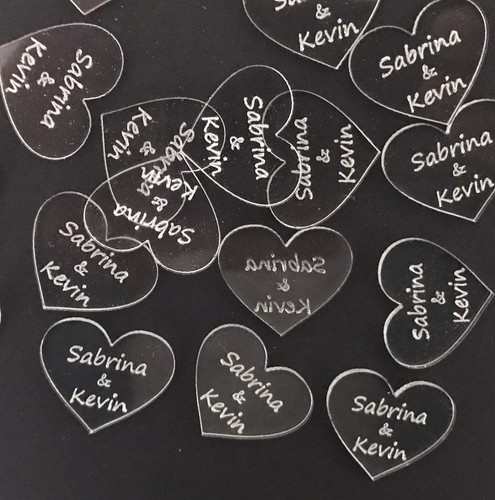 Sabrina
&
Kevin
Sabrina
&
Kevin
Sabrina
&
Kevin
Sabrina
&
Kevin
Sabrina
&
Kevin
Sabrina
&
Kevin
Sabrina
&
Kevin
Sabrina
&
Kevin
Sabrina
&
Kevin
Sabrina
&
Kevin
Sabrina
&
Kevin
Sabrina
&
Kevin
Sabrina
&
Kevin
Sabrina
&
Kevin